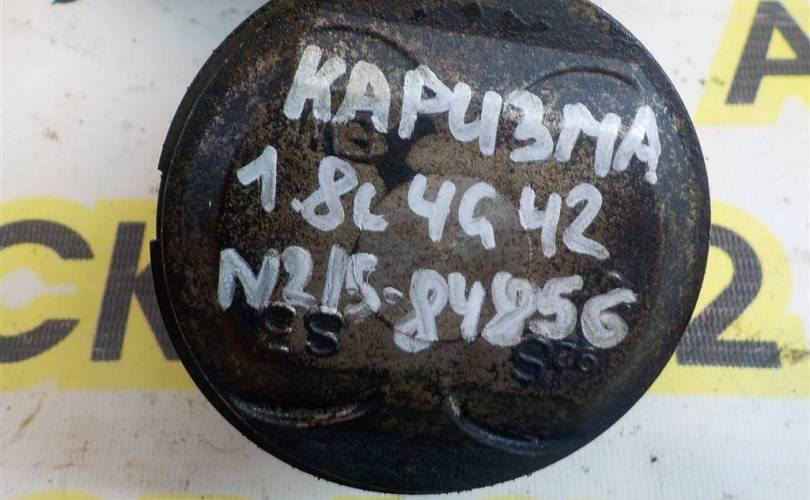 КАРИЗМА
1.8L 4G 42
N2/5-84856
СК
2
А